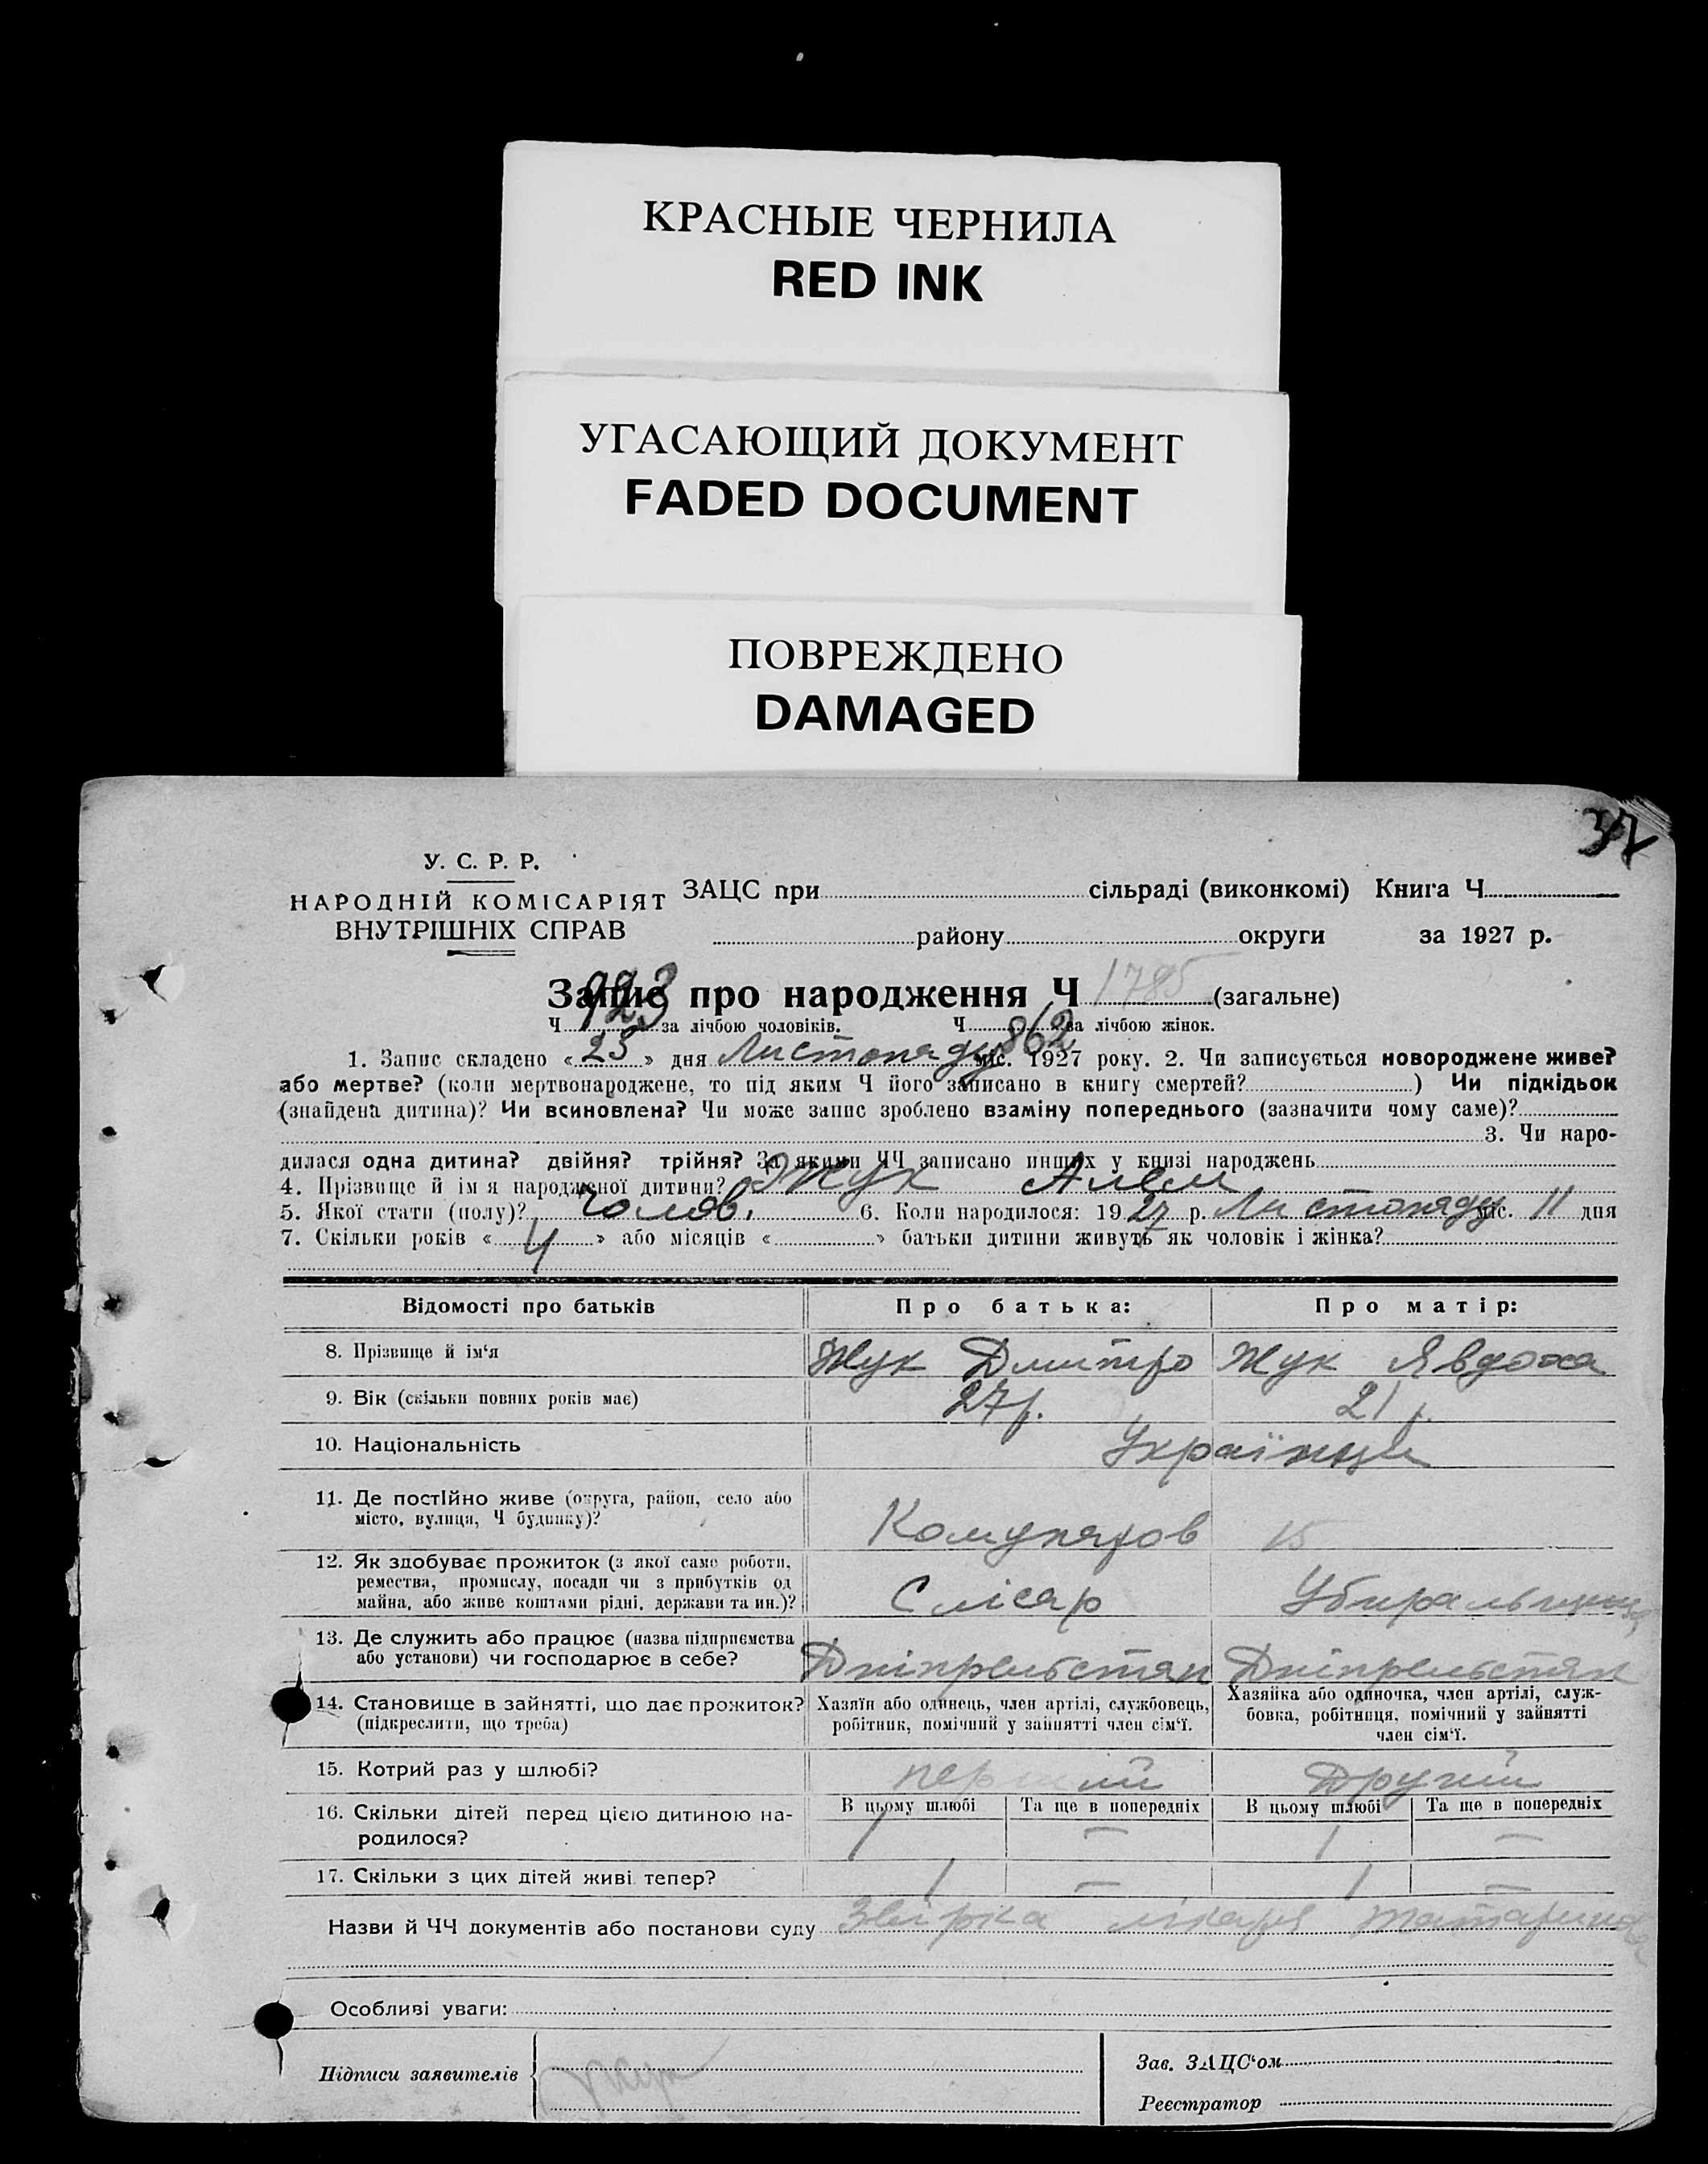 КРАСНЫЕ ЧЕРНИЛА
RED INK
УГАСАЮЩИЙ ДОКУМЕНТ
FADED DOCUMENT
ПОВРЕЖДЕНО
DAMAGED
У. С. Р. Р.
НАРОДНІЙ КОМІСАРІЯТ
ВНУТРІШНІХ СПРАВ
ЗАЦС при сільраді (виконкомі) Книга Ч
району округи за 1927 р.
Запис про народження Ч 1795 (загальне)
Ч 923 за лічбою чоловіків. Ч 862 за лічбою жінок.
1. Запис складено « 25 » дня Листопаду міс. 1927 року. 2. Чи записується новороджене живе?
або мертве? (коли мертвонароджене, то під яким Ч його записано в книгу смертей? ) Чи підкідьок
(знайдена дитина)? Чи всиновлена? Чи може запис зроблено взаміну попереднього (зазначити чому саме)?
3. Чи наро-
дилася одна дитина? двійня? трійня? За якими ЧЧ записано инших у книзі народжень
4. Прізвище й ім я народженої дитини? Жук
5. Якої стати (полу)? Чолов. 6. Коли народилося: 19 27 р. Листопаду міс. 11 дня
7. Скільки років « 4 » або місяців « » батьки дитини живуть як чоловік і жінка?
Відомості про батьків Про батька: Про матір:
8. Прізвище й ім‘я Жук Дмитро Жук Явдоха
9. Вік (скільки повних років має) 27 р. 21 р.
10. Національність Українці
11. Де постійно живе (округа, район, село або
місто, вулиця, Ч будинку)? Комунаров 15
12. Як здобуває прожиток (з якої саме роботи,
ремества, промислу, посади чи з прибутків од
майна, або живе коштами рідні, держави та ин.)? Слісар Убиральщиця
13. Де служить або працює (назва підприємства
або установи) чи господарює в себе? Дніпрельстан Дніпрельстан
14. Становище в зайнятті, що дає прожиток?
(підкреслити, що треба)
Хазяїн або одинець, член артілі, службовець,
робітник, помічний у зайнятті член сім‘ї.
Хазяйка або одиночка, член артілі, служ-
бовка, робітниця, помічний у зайнятті
член сім‘ї.
15. Котрий раз у шлюбі? перший Другий
16. Скільки дітей перед цією дитиною на-
родилося?
В цьому шлюбі Та ще в попередніх В цьому шлюбі Та ще в попередніх
1 — 1 —
17. Скільки з цих дітей живі тепер? 1 — 1 —
Назви й ЧЧ документів або постанови суду лікаря
Особливі уваги:
Підписи заявителів Жук
Зав. ЗАЦС‘ом
Реєстратор